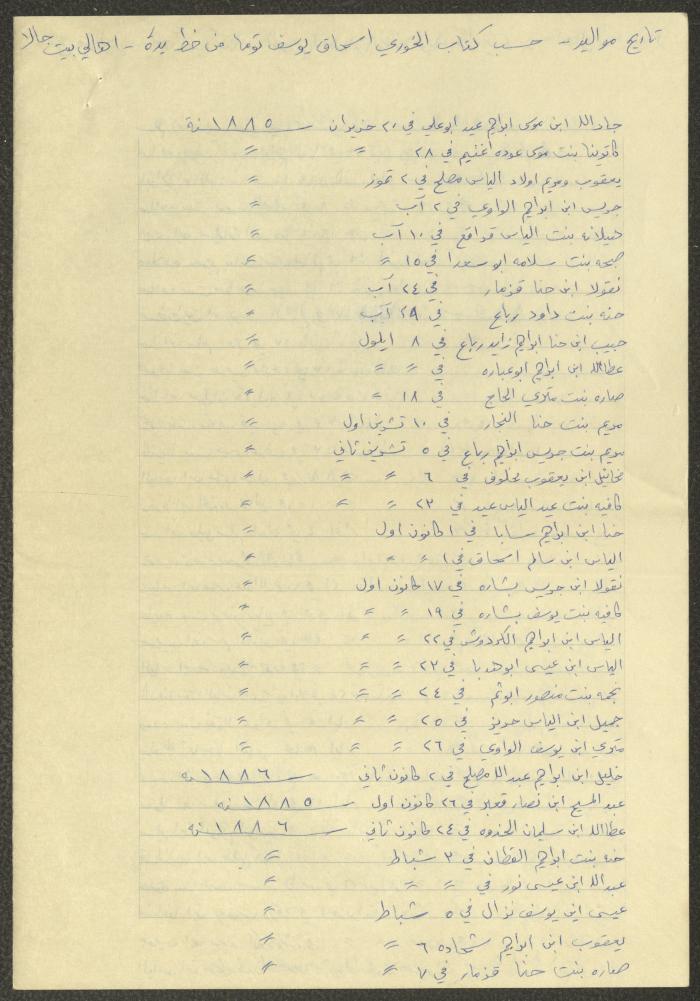 تاريخ مواليد - حسب كتاب الخوري اسحاق يوسف توما من خط يده - اهالي بيت جالا
جادالله ابن موسى ابراهيم عيد ابو علي في ٢٠ حزيران ١٨٨٥ سنة
كاترينا بنت موسى عوده اغنيم في ٢٨ = =
يعقوب ومريم اولاد الياس مصلح في ٢ تموز =
جريس ابن ابراهيم الراعي في ٢ آب =
هيلانه بنت الياس قراقع في ١٠ آب =
صبحه بنت سلامه ابو سعدا في ١٥ = =
نقولا ابن حنا قزمار في ٢٤ آب =
حنه بنت داود رباع في ٢٩ آب =
حبيب ابن حنا ابراهيم زايد رباع في ٨ ايلول =
عطاالله ابن ابراهيم ابو عباره في = = =
صاره بنت متري الحاج في ١٨ = =
مريم بنت حنا النجار في ١٠ تشرين اول =
مريم بنت جريس ابراهيم رباع في ٥ تشرين ثاني =
مخائيل ابن يعقوب مخلوف في ٦ = = =
كافيه بنت عبد الياس عيد في ٢٣ = = =
حنا ابن ابراهيم سابا في ١ كانون اول =
الياس ابن سالم اسحاق في ١ = = =
نقولا ابن جريس بشاره في ١٧ كانون اول =
كافيه بنت يوسف بشاره في ١٩ = = =
الياس ابن ابراهيم الكردوش في ٢٢ = = =
الياس ابن عيسى ابو هدبا في ٢٣ = = =
نجمه بنت منصور ابو ثم في ٢٤ = = =
جميل ابن الياس حريز في ٢٥ = = =
متري ابن يوسف الراوي في ٢٦ = = =
خليل ابن ابراهيم عبدالله مصلح في ٢ كانون ثاني ١٨٨٦ سنه
عبد المسيح ابن نصار قعبر في ٢٦ كانون اول ١٨٨٥ سنه
عطاالله ابن سليمان الخدوه في ٢٤ كانون ثاني ١٨٨٦ سنه
حنه بنت ابراهيم القطان في ٣ شباط =
عبدالله ابن عيسى نور في = = =
عيسى ابن يوسف نزال في ٥ شباط =
يعقوب ابن ابراهيم شحاده ٦ = =
صاره بنت حنا قزمار في ٧ = =